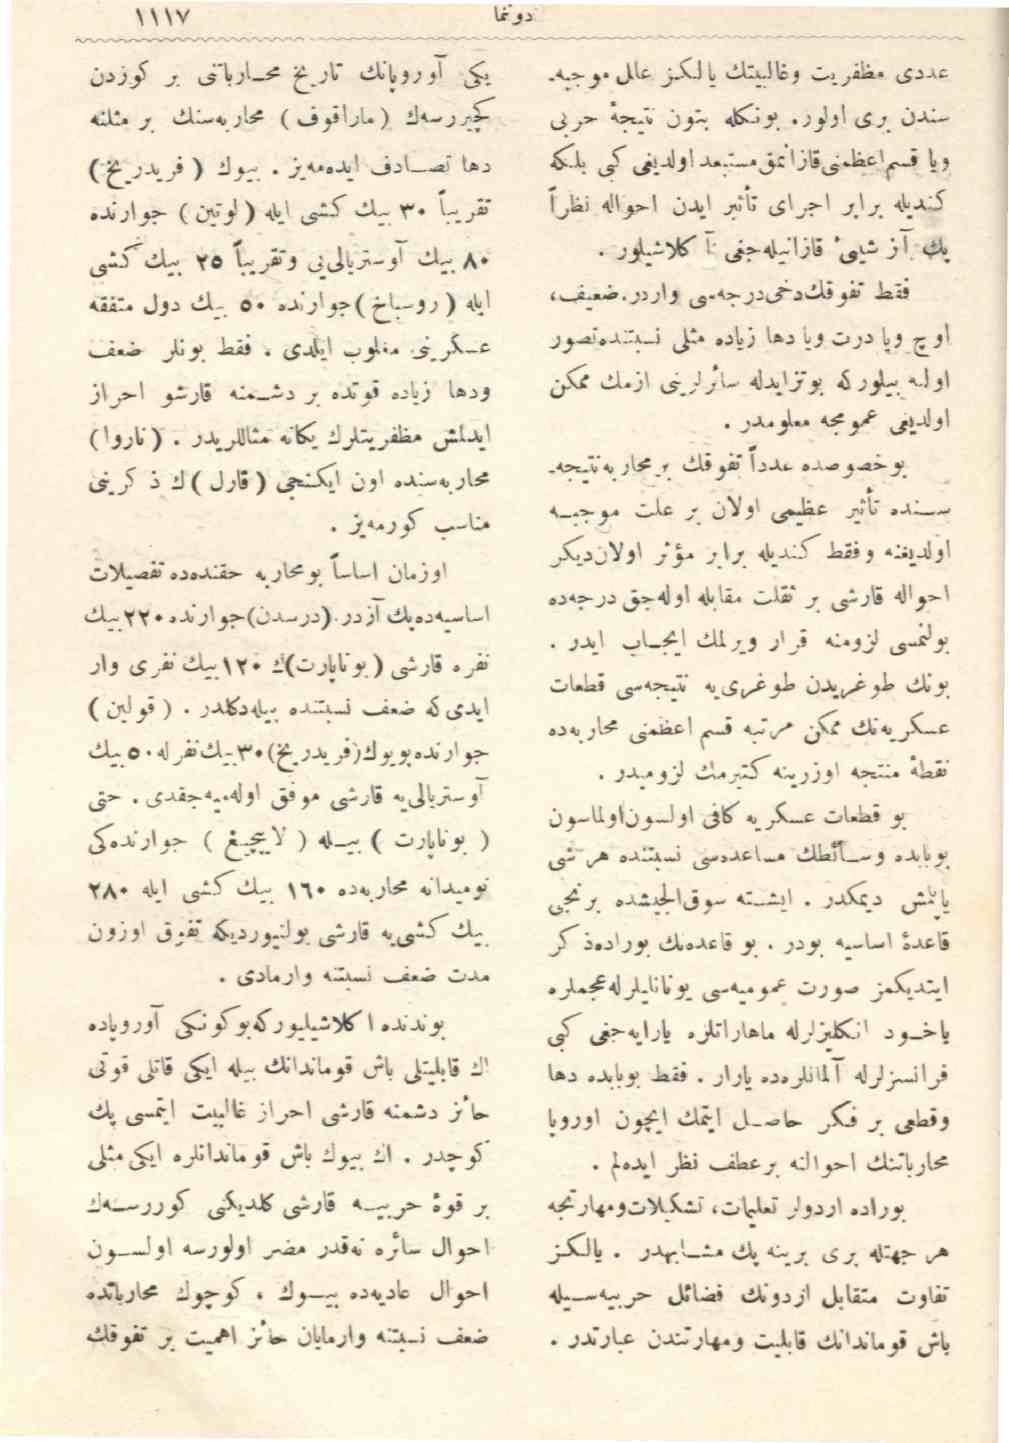 دوننما
١١١٧
عددی مظفریت وغالبیتك یالکز عالل موجبه-
سندن بری اولور. بونکله بتون نتیجهٔ حربی
ویا قسم اعظمنی قازانمق مستبعد اولدیغی کبی بلکه
کندیله برابر اجرای تأثیر ایدن احواله نظراً
پك آز شیئ قازانیله‌جغی آ کلاشیلور .
فقط تفوقك دخی درجه‌سی واردر. ضعیف،
اوچ ویا درت ویا دها زیاده مثلی نسبتنده تصور
اولنه بیلورکه بوتزایدله سائرلرینی ازمك ممکن
اولدیغی عمومجه معلومدر .
بوخصوصده عدداً تفوقك بر محاربه نتیجه-
سـنده تأثیر عظیمی اولان بر علت موجبـه
اولدیغنه وفقط کندیله برابر مؤثر اولان دیکر
احواله قارشی بر ثقلت مقابله اوله‌جق درجه‌ده
بولنمسی لزومنه قرار ویرلمك ایجـاب ایدر .
بونك طوغریدن طوغری‌یه نتیجه‌سی قطعات
عسکریه‌نك ممکن مرتبه قسم اعظمنی محاربه‌ده
نقطهٔ منتجه اوزرینه کتیرمك لزومیدر .
بو قطعات عسکریه کافی اولسون اولماسون
بوبابده وسـائطك مساعده‌سی نسبتنده هر شی
یاپلمش دیمکدر . ایشـته سوق‌الجیشده برنجی
قاعدهٔ اساسیه بودر . بو قاعده‌نك بوراده ذکر
ایتدیکمز صورت عمومیه‌سی یونانلیلرله عجملره
یاخـود انکلیزلرله ماهاراتلره یارایه‌جغی کبی
فرانسزلرله آلمانلره‌ده یارار . فقط بوبابده دها
وقطعی بر فکر حاصـل ایتمك ایچون اوروپا
محارباتنك احوالنه بر عطف نظر ایده‌لم .
بوراده اردولر تعلیمات، تشکیلات ومهارتجه
هر جهتله بری برینه پك مشـابهدر . یالکز
تفاوت متقابل اردونك فضائل حربیه‌سـیله
باش قوماندانك قابلیت ومهارتندن عبارتدر .
یکی آوروپانك تاریخ محـارباتنی بر کوزدن
کچیررسه‌ك (ماراقوف) محاربه‌سنك بر مثلنه
دها تصـادف ایده‌مه‌یز . بیوك (فریدریخ)
تقریباً ٣٠ بیك کشی ایله (لوتین) جوارنده
٨٠ بیك آوستریالی‌یی وتقریباً ٢٥ بیك کشی
ایله (روسباخ) جوارنده ٥٠ بیك دول متفقه
عسکرینی مغلوب ایلدی . فقط بونلر ضعف
ودها زیاده قوتده بر دشـمنه قارشو احراز
ایدلمش مظفریتلرك یکانه مثاللریدر . (ناروا)
محاربه‌سنده اون ایکنجی (قارل)ك ذکرینی
مناسب کورمه‌یز .
اوزمان اساساً بومحاربه حقنده‌ده تفصیلات
اساسیه‌ده پك آزدر. (درسدن) جوارنده ٢٢٠ بیك
نفره قارشی (بوناپارت)ك ١٢٠ بیك نفری وار
ایدی که ضعف نسبتنده بیله دکلدر . (قولین)
جوارنده بویوك (فریدریخ) ٣٠ بیك نفرله ٥٠ بیك
آوستریالی‌یه قارشی موفق اوله‌میه‌جقدی . حتی
(بوناپارت) بیـله (لایپچیغ) جوارنده‌کی
نومیدانه محاربه‌ده ١٦٠ بیك کشی ایله ٢٨٠
بیك کشی‌یه قارشی بولنیوردیکه تفوق اوزون
مدت ضعف نسبتنه وارمادی .
بوندنده اکلاشیلیورکه بوکونکی آوروپاده
اك قابلیتلی باش قوماندانك بیله ایکی قاتلی قوتی
حائز دشمنه قارشی احراز غالبیت ایتمسی پك
کوچدر . اك بیوك باش قوماندانلره ایکی مثلی
بر قوهٔ حربیـه قارشی کلدیکنی کوررسـه‌ك
احوال سائره نه‌قدر مضر اولورسه اولسـون
احوال عادیه‌ده بیـوك ، کوچوك محارباتده
ضعف نسبتنه وارمایان حائز اهمیت بر تفوقك